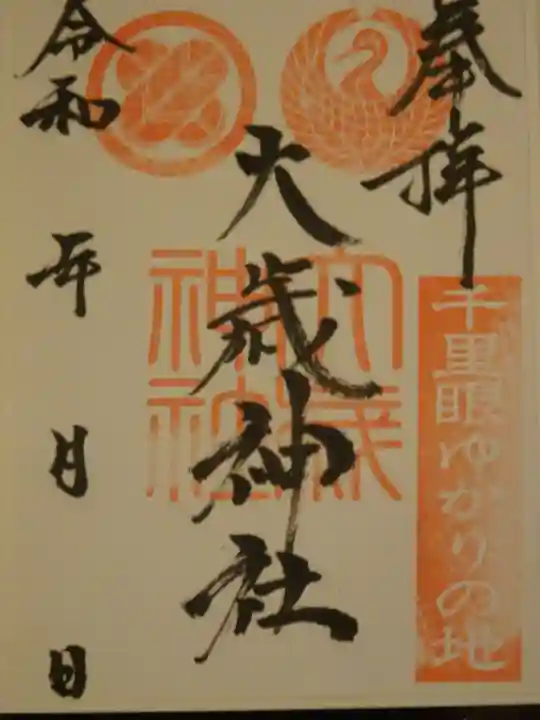 奉拝
千里眼ゆかりの地
大歳神社
大歳
神社
令和 年 月 日